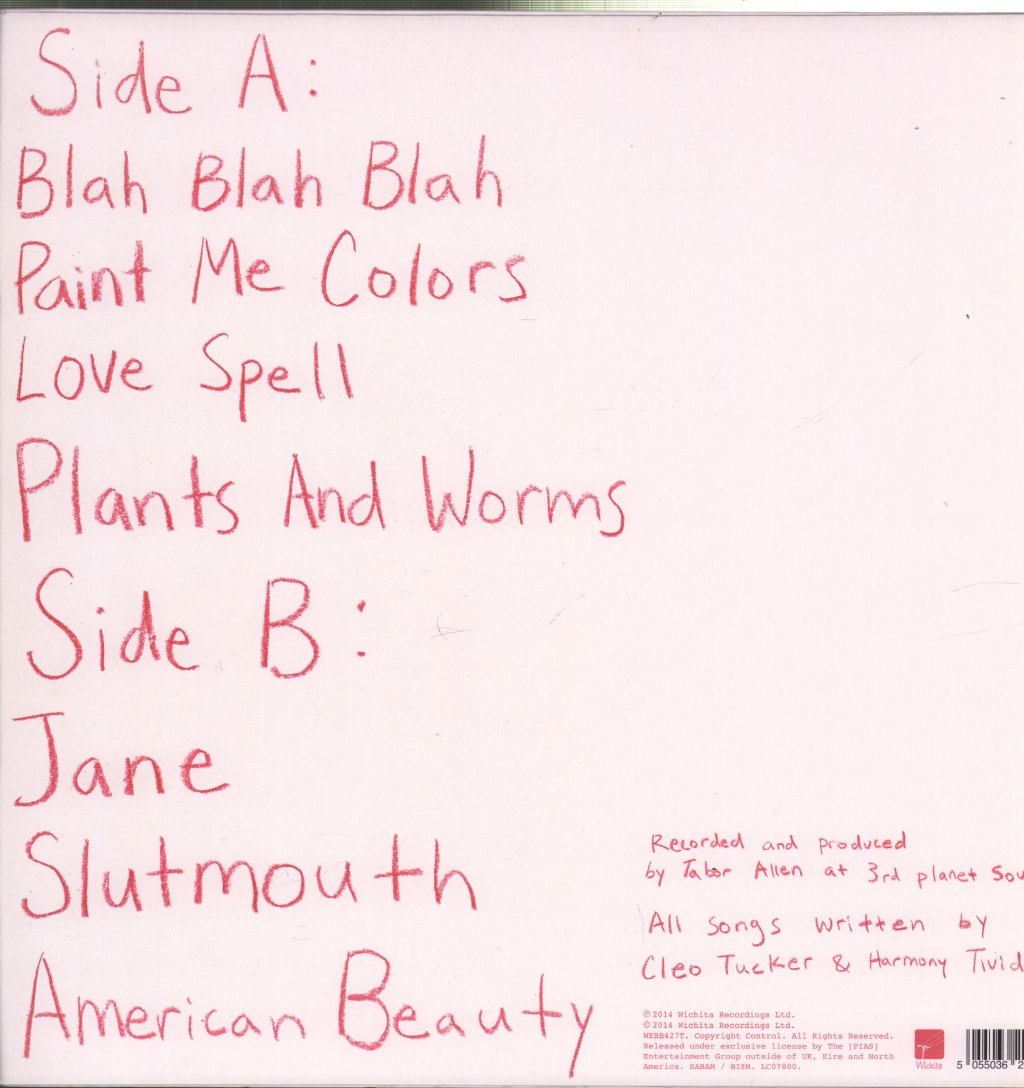 Side A:
Blah Blah Blah
Paint Me Colors
Love Spell
Plants And Worms
Side B:
Jane
Slutmouth
American Beauty
Recorded and produced
by Tabor Allen at 3rd planet Sou
All songs written by
Cleo Tucker & Harmony Tivid
℗ 2014 Wichita Recordings Ltd.
© 2014 Wichita Recordings Ltd.
WEBB427T. Copyright Control. All Rights Reserved.
Released under exclusive license by The [PIAS]
Entertainment Group outside of UK, Eire and North
America. SABAM / BIEM. LC07800.
Wichita
5 055036 2